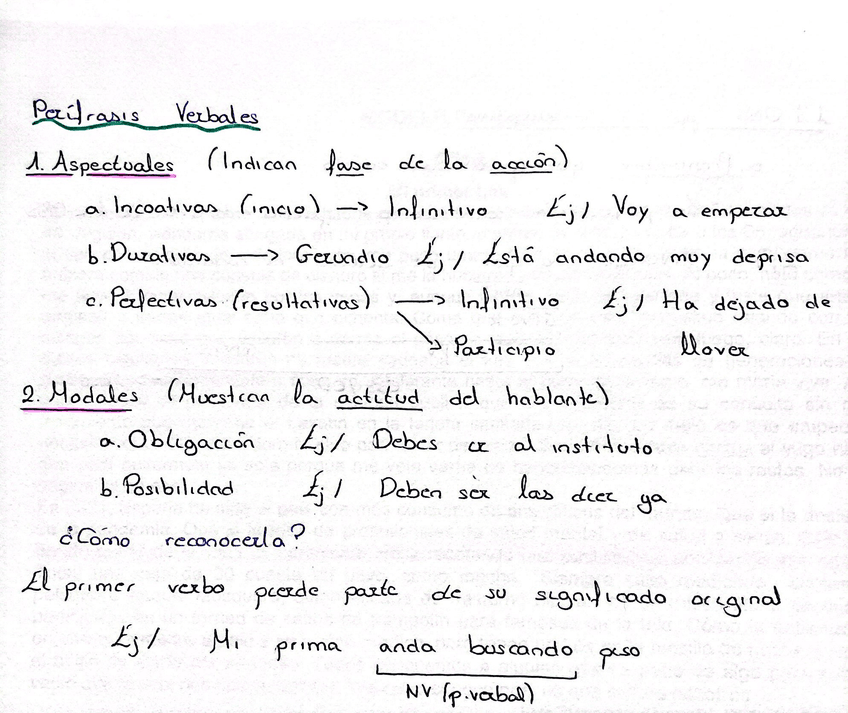 Perífrasis Verbales
1. Aspectuales (Indican fase de la acción)
a. Incoativas (inicio) → Infinitivo Ej/ Voy a empezar
b. Durativas → Gerundio Ej/ Está andando muy deprisa
c. Perfectivas (resultativas) → Infinitivo Ej/ Ha dejado de
→ Participio llover
2. Modales (Muestran la actitud del hablante)
a. Obligación Ej/ Debes ir al instituto
b. Posibilidad Ej/ Deben ser las diez ya
¿Cómo reconocerla?
El primer verbo pierde parte de su significado original
Ej/ Mi prima anda buscando piso
NV (p.verbal)